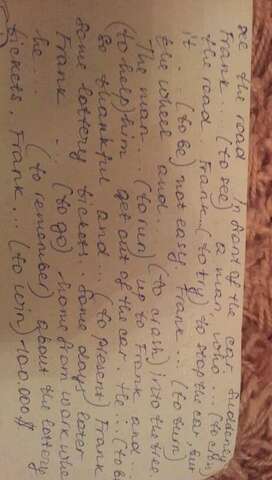 see the road in front of the car. Suddenly
Frank... (to see) a man, who... (to cross)
the road. Frank... (to try) to stop the car, but
it... (to be) not easy. Frank... (to turn)
the wheel and... (to crash) into the tree.
The man... (to run) up to Frank and...
(to help) him get out of the car. He... (to be)
so thankful and... (to present) Frank
some lottery tickets. Some days later
Frank... (to go) home from work when
he... (to remember) about the lottery
tickets. Frank... (to win) 100.000$